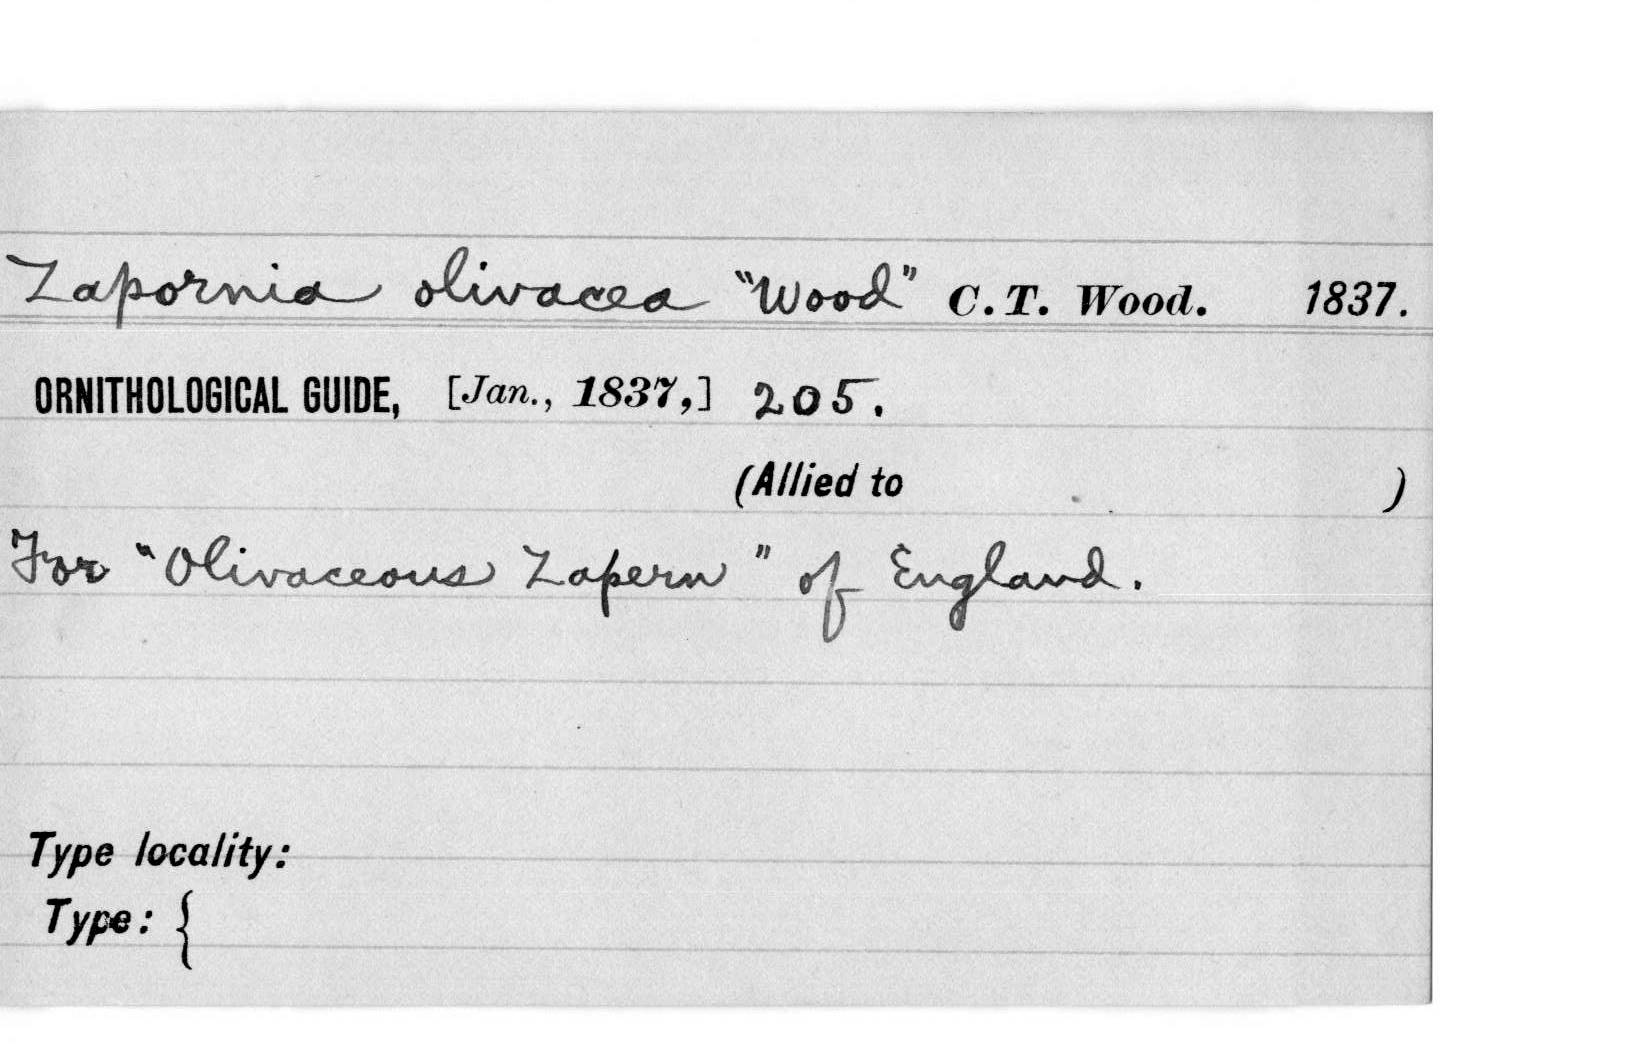 Zapornia olivacea "Wood" C.T. Wood. 1837.
ORNITHOLOGICAL GUIDE, [Jan., 1837,] 205.
(Allied to )
For "Olivaceous Zapern" of England.
Type locality:
Type: {